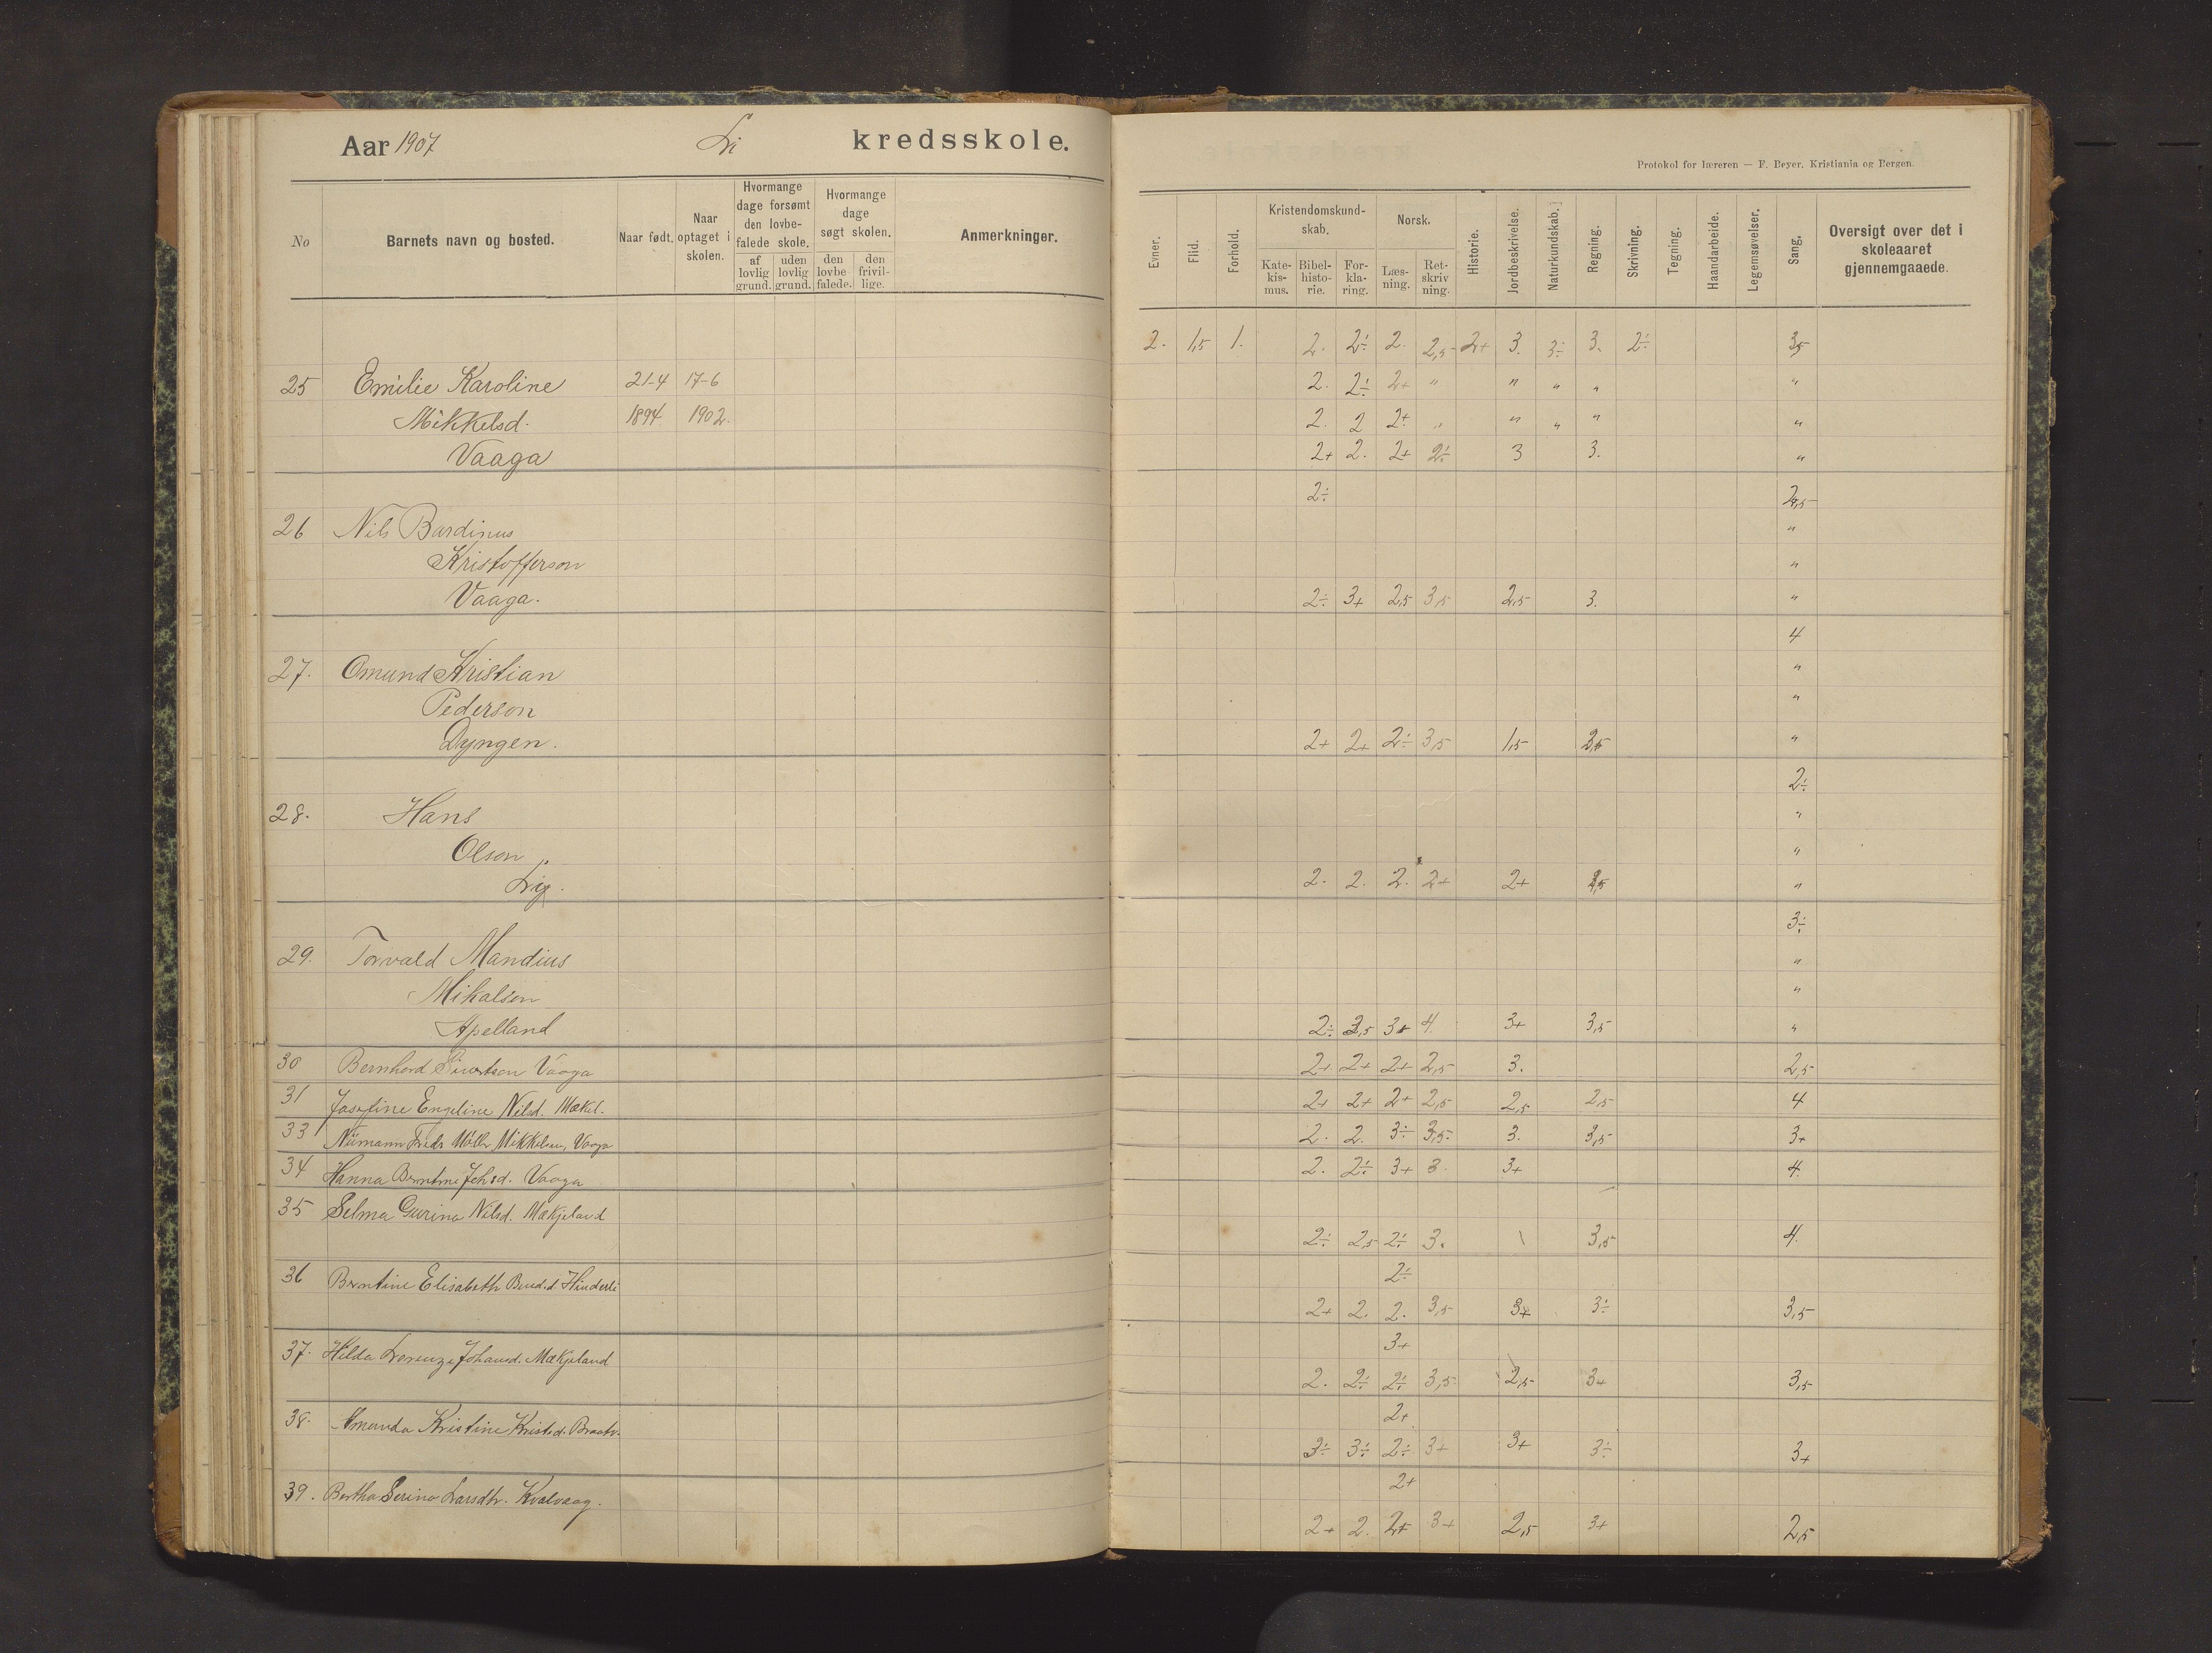 Aar 1907 Li kredsskole.
Protokol for læreren — F. Beyer. Kristiania og Bergen.
No
Barnets navn og bosted.
Naar født.
Naar optaget i skolen.
Hvormange dage forsømt den lovbefalede skole.
af lovlig grund.
uden lovlig grund.
Hvormange dage søgt skolen.
den lovbefalede.
den frivillige.
Anmerkninger.
Evner.
Flid.
Forhold.
Kristendomskundskab.
Katekismus.
Bibelhistorie.
Forklaring.
Norsk.
Læsning.
Retskrivning.
Historie.
Jordbeskrivelse.
Naturkundskab.
Regning.
Skrivning.
Tegning.
Haandarbeide.
Legemsøvelser.
Sang.
Oversigt over det i skoleaaret gjennemgaaede.
2. 1,5 1. 2. 2÷ 2. 2,5 2+ 3. 3÷ 3. 2÷ 3,5
25 Emilie Karoline 21-4 17-6 2. 2÷ 2+ " " " " "
Mikkelsd. 1894 1902. 2. 2 2+ " " " " "
Vaaga 2+ 2. 2+ 2÷ 3 3. "
2÷
26 Nils Bardinus "
Kristofferson "
Vaaga. 2÷ 3+ 2,5 3,5 2,5 3. "
4
27. Omund Kristian "
Pederson "
Dyngen. 2+ 2+ 2÷ 3,5 1,5 "
2÷
28. Hans "
Olson "
Li 2. 2. 2. 2+ 2+ "
3÷
29. Torvald Mandius "
Mikalson "
Apelland 2÷ 3,5 3+ 4 3+ 3,5 "
30 Bernhard Sivertson Vaaga 2+ 2+ 2+ 2,5 3. 2,5
31 Josefine Engeline Nilsd. Mækel. 2+ 2+ 2+ 2,5 2,5 2,5 4
33 Mikkelsen, Vaaga 2. 2. 3÷ 3,5 3. 3,5 3+
34 Hanna Berntine Johsd. Vaaga 2. 2÷ 3+ 3 3+ 4.
35 Selma Gurina Nilsd. Mækjeland
2÷ 2,5 2÷ 3. 3,5 4.
36 Berntine Elisabeth Hinderli 2÷
2+ 2. 2. 3,5 3+ 3÷ 3,5
37. Hilda Johansd. Mækjeland 3+
2. 2÷ 2÷ 3,5 2,5 3+ 3,5
38. Amanda Kristine Kristd. 2+
3÷ 3÷ 2÷ 3+ 3+ 3÷ 3+
39. Bertha Serina Larsdtr. Kvalvaag. 2+
2+ 2. 2+ 3+ 2,5 3+ 2,5